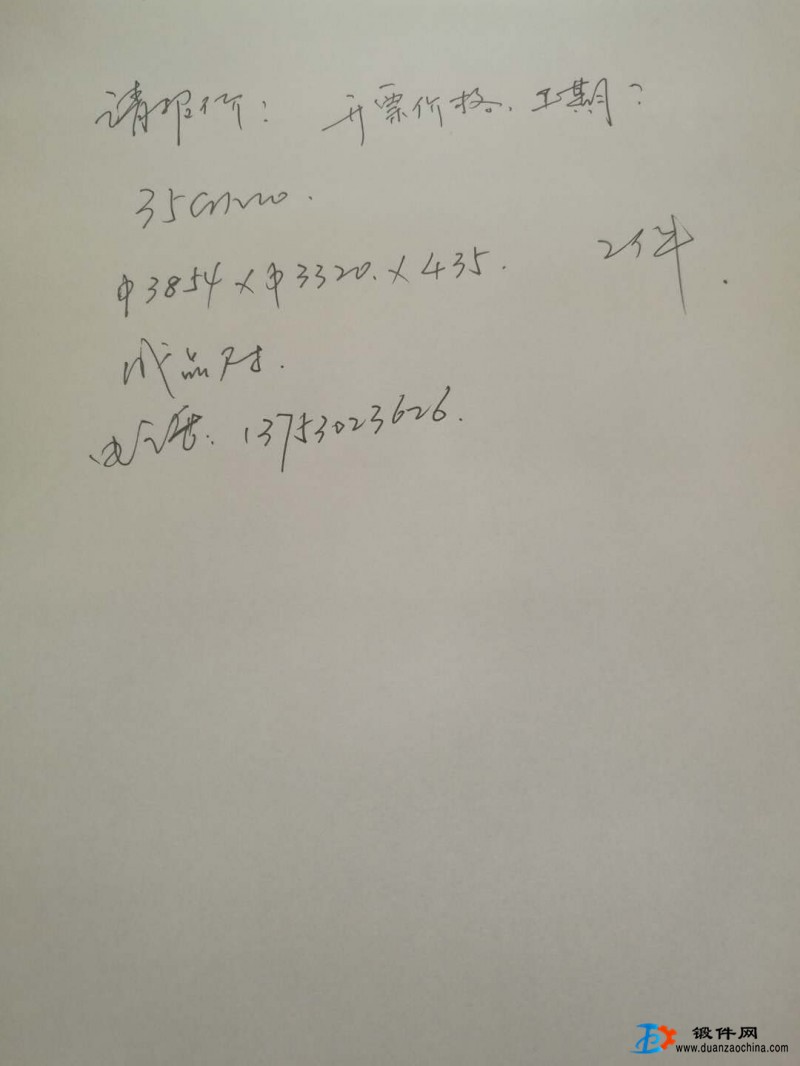 请报价: 开票价格、工期?
35CrMo.
φ3854×φ3320.×435. 2件.
成品尺寸.
电话: 13753023626.
锻件网
www.duanzaochina.com